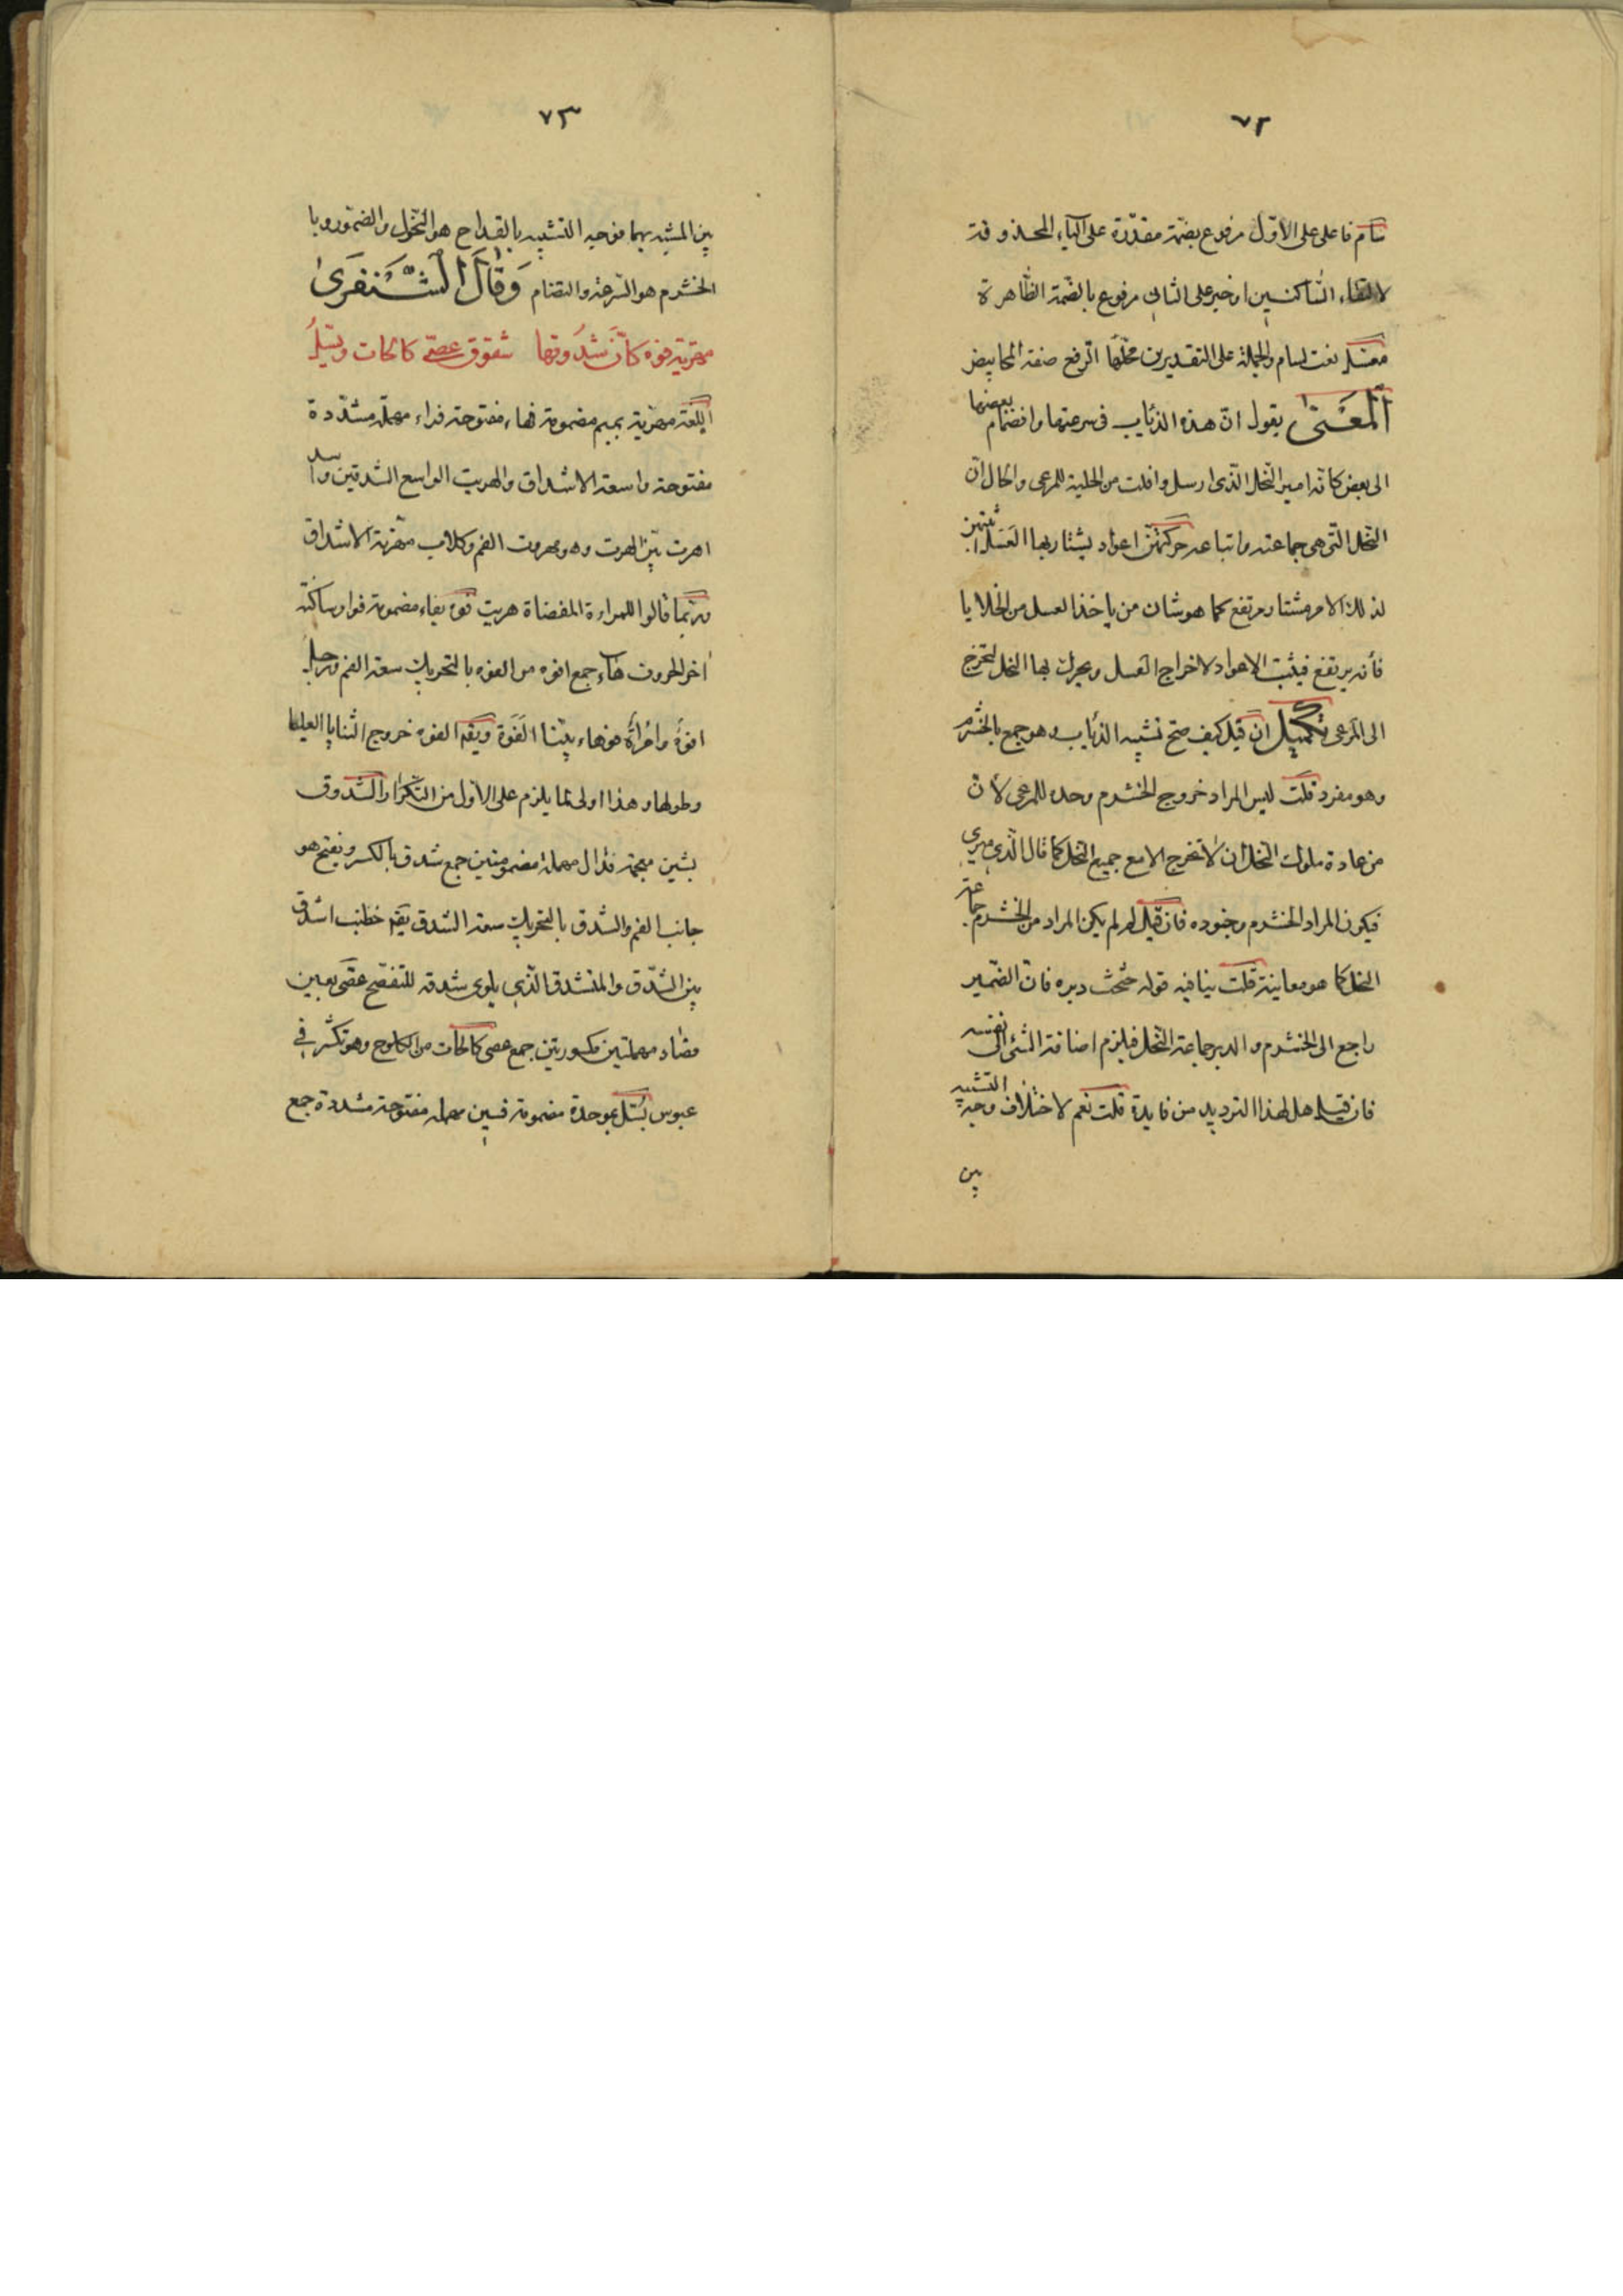 ٧٢
سام فاعل على الاوّل مرفوع بضمّة مقدّرة على الياء المحذوفة
لالتقاء السّاكنين او خبر على الثانى مرفوع بالضمّة الظّاهرة
معسّل نعت لسام والجملة على التقديرين محلّها الرّفع صفة المحابيض
اَلْمَعْنىٰ يقول انّ هذه الذئاب فى سرعتها وانضمام بعضها
الى بعض كانّه امير النّحل الّذى ارسل وافلت من الخلية للمرعى والحال انّ
النّحل التى هى جماعته واتباعه حركتهنّ اعواد يشتار بها العسل اثبتهن
لذلك الامر مشتار مرتفع كما هو شان من ياخذ العسل من الخلايا
فأنه يرتفع فيثبت الاعواد لاخراج العسل ويحرك بها النحل لتخرج
الى المرعى تكميل ان قيل كيف صحّ تشبيه الذئاب وهو جمع بالخشرم
وهو مفرد قلت ليس المراد خروج الخشرم وحده للمرعى لأن
من عادة ملوك النّحل ان لا تخرج الا مع جميع النّحل كما قال الدّميرى
فيكون المراد الخشرم وجنوده فان قيل لم لم يكن المراد من الخشرم جماعة
النحل كما هو معانيه قلت ينافيه قوله حثحث دبره فانّ الضّمير
راجع الى الخشرم والدبر جماعة النّحل فيلزم اضافة الشئ الى نفسه
فان قيل هل لهذا الترديد من فايدة قلت نعم لاختلاف وجه التشبيه
بين
٧٣
بين المشبه بهما فوجه التشبيه بالقداح هو النّحول والضمّور وبا
الخشرم هو السّرعة والتضام وَقٰالَ الشَّنْفَرىٰ
مهرّتة فوه كانّ شدوقها شقوق عصىّ كالحات وبسّل
اللّغة مهرّتة بميم مضمومة فهاء مفتوحة فراء مهملة مشدّدة
مفتوحة واسعة الاشداق والهريت الواسع الشدقين واسد
اهرت بيّن الهرت وهو مهروت الفم وكلاب مهرّتة الاشداق
وربّما قالوا للمراءة المفضاة هريت فوه بفاء مضمومة فواو ساكنة
اخر الحروف هاء جمع افوه من الفوه بالتحريك سعة الفم ورجل
افوهُ وامرأةٌ فوهاء بيّنا الفَوَه ويقم الفوه خروج الثنايا العليا
وطولها وهذا اولى لما يلزم على الاوّل من التّكرار الشدوق
بشين معجمة فدال مهملة مضمومتين جمع شدق بالكسر ويفتح هو
جانب الفم والشدق بالتحريك سعة الشدق يقم خطيب اشدق
بيّن الشّدق والمتشدق الّذى يلوى شدقه للتفصّح عصّى بعين
وصاد مهملتين مكسورتين جمع عصى كالحات من الكلوح وهو تكشّر فى
عبوس بسّل بموحدة مضمومة فسين مهملة مفتوحة مشددة جمع